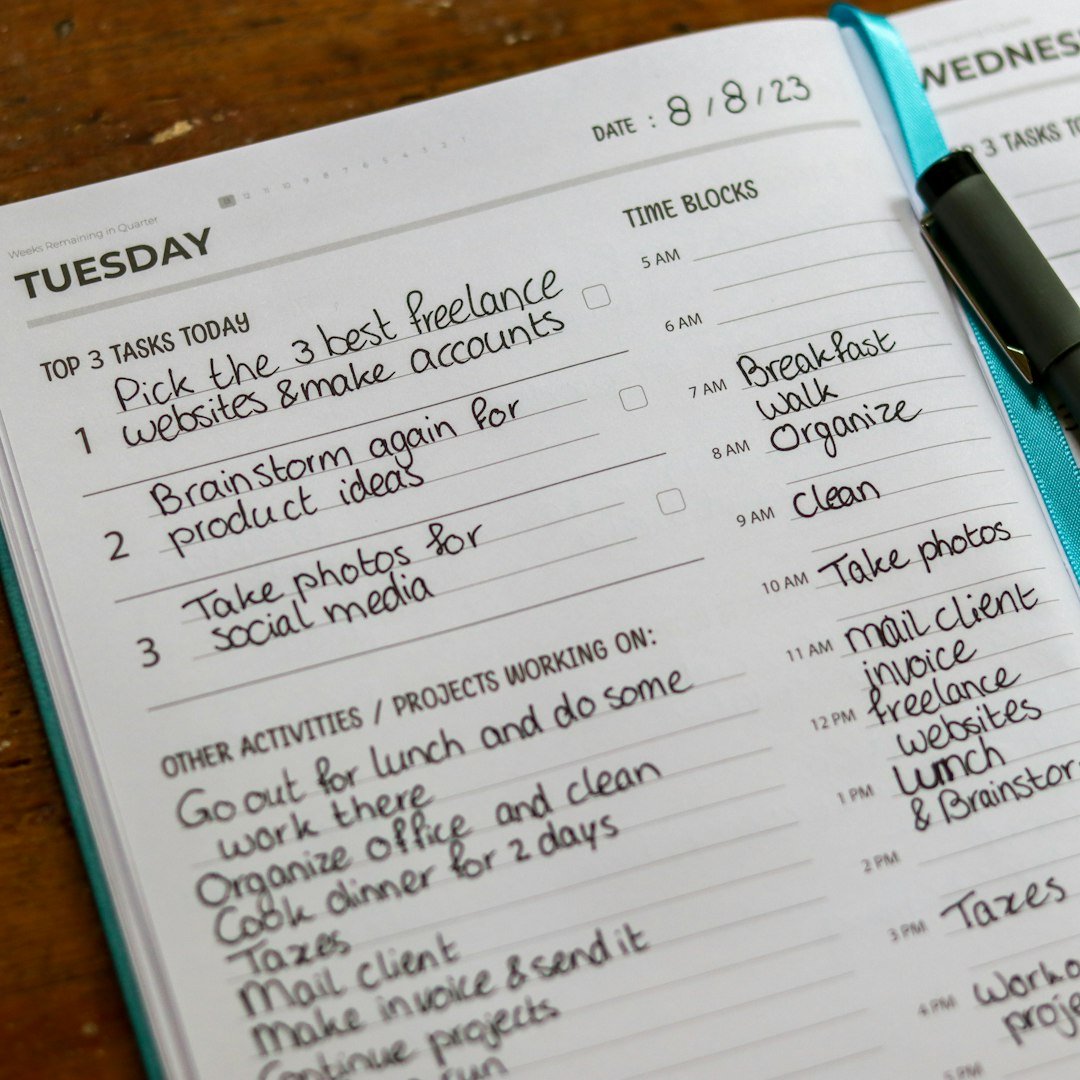 Weeks Remaining in Quarter
13 12 11 10 9 8 7 6 5 4 3 2 1
DATE : 8/8/23
TUESDAY
TOP 3 TASKS TODAY
Pick the 3 best freelance
1 websites & make accounts
Brainstorm again for
2 product ideas
Take photos for
3 social media
OTHER ACTIVITIES / PROJECTS WORKING ON:
Go out for lunch and do some
work there
Organize office and clean
Cook dinner for 2 days
Taxes
Mail client
Make invoice & send it
Continue projects
run
TIME BLOCKS
5 AM
6 AM
7 AM Breakfast
walk
8 AM Organize
9 AM Clean
10 AM Take photos
11 AM mail client
invoice
12 PM freelance
websites
1 PM Lunch
& Brainstor
2 PM
3 PM Taxes
4 PM Work o
proje
5 PM
WEDNES
3 TASKS TO